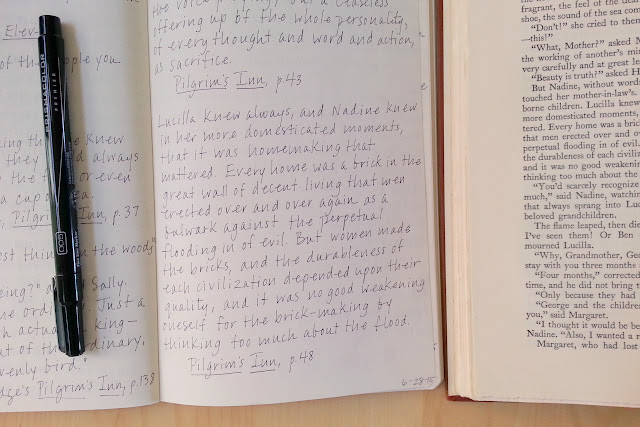 Elev-
of the people you
ing the knew
they always
the or even
a cup of
Pilgrim's Inn, p.37
ost thin the woods"
eing?" Sally.
ne ord Just a
h actua king—
ut of the ordinary,
venly bird."
dge's Pilgrim's Inn, p.138
PRISMACOLOR
PREMIER
005
the voice
offering up of the whole personality,
of every thought and word and action,
as sacrifice.
Pilgrim's Inn, p.43
Lucilla knew always, and Nadine knew
in her more domesticated moments,
that it was homemaking that
mattered. Every home was a brick in the
great wall of decent living that men
erected over and over again as a
bulwark against the perpetual
flooding in of evil. But women made
the bricks, and the durableness of
each civilization depended upon their
quality, and it was no good weakening
oneself for the brick-making by
thinking too much about the flood.
Pilgrim's Inn, p.48
6-28-15
fragrant, the feel of the
shoe, the sound of the sea com
"Don't!" she cried to them
—this!"
"What, Mother?" asked M
the working of another's mi
very carefully and at great le
"Beauty is truth?" asked H
But Nadine, without words
touched her mother-in-law's.
borne children. Lucilla knew
more domesticated moments,
tered. Every home was a bric
that men erected over and o
perpetual flooding in of evil.
the durableness of each civiliz
and it was no good weakenin
thinking too much about the
"You'd scarcely recognize
much," said Nadine, watchin
that always sprang into Luc
beloved grandchildren.
The flame leaped, then die
I've seen them! Or Ben
mourned Lucilla.
"Why, Grandmother, Geo
stay with you three months
"Four months," corrected
time, and he did not bring t
"Only because they had
"George and the children
you," said Margaret.
"I thought it would be be
Nadine. "Also, I wanted a r
Margaret, who had lost